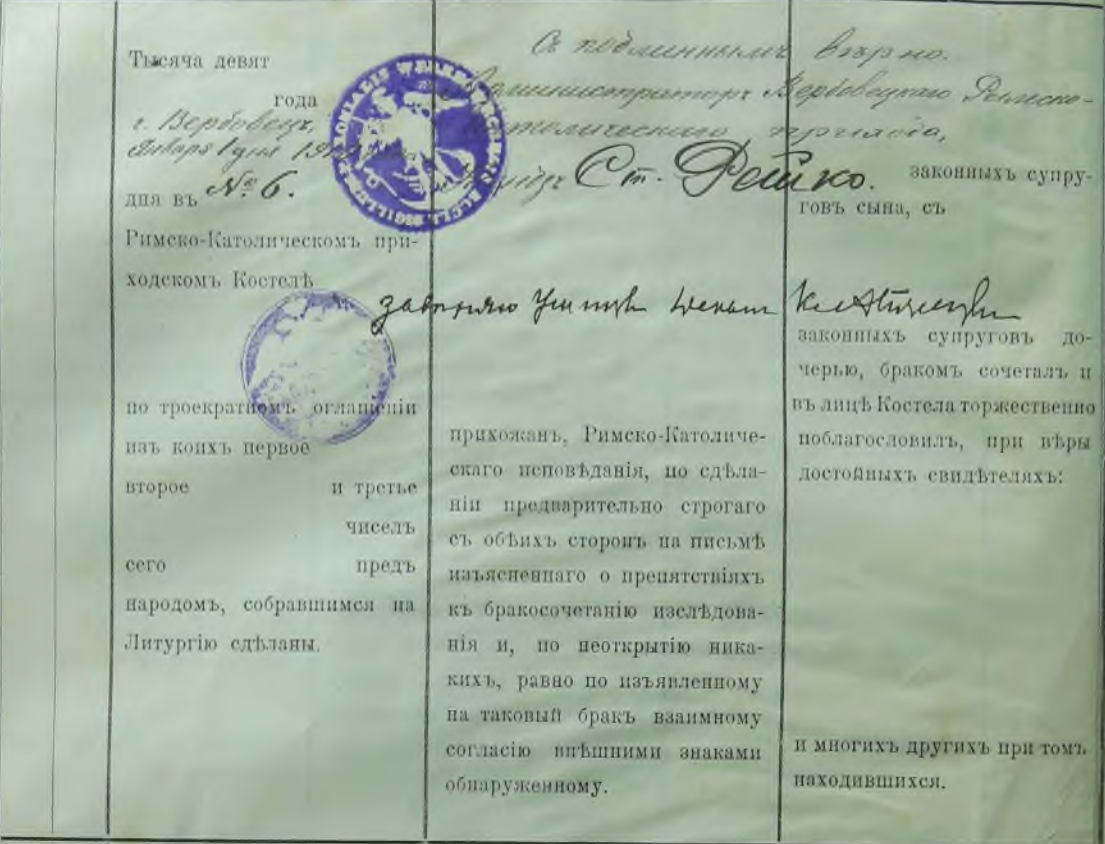 Тысяча девят
года
г. Вербовец,
Января 1 дня
дня въ № 6.
Римско-Католическомъ при-
ходскомъ Костелѣ
по троекратномъ оглашеніи
изъ коихъ первое
второе и третье
чиселъ
сего предъ
народомъ, собравшимся на
Литургію сдѣланы.
Съ подлиннымъ вѣрно.
Администраторъ Вербовецкаго Римско-
Католическаго прихода,
Ст. Рейко.
завѣряю
прихожанъ, Римско-Католиче-
скаго исповѣданія, по сдѣла-
ніи предварительно строгаго
съ обѣихъ сторонъ на письмѣ
изъясненнаго о препятствіяхъ
къ бракосочетанію изслѣдова-
нія и, по неоткрытію ника-
кихъ, равно по изъявленному
на таковый бракъ взаимному
согласію внѣшними знаками
обнаруженному.
законныхъ супру-
говъ сына, съ
законныхъ супруговъ до-
черью, бракомъ сочеталъ и
въ лицѣ Костела торжественно
поблагословилъ, при вѣры
достойныхъ свидѣтеляхъ:
и многихъ другихъ при томъ
находившихся.